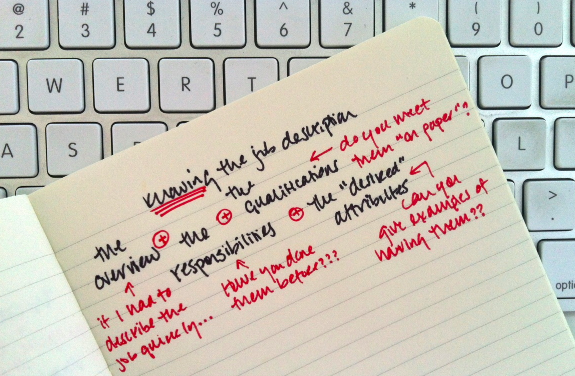 @ # $ % ^ & * ( )
2 3 4 5 6 7 9 0
W E R T O P
A S L
>
.
optio
knowing the job description
the overview + the responsibilities + the qualifications + the "desired" attributes
← do you meet
them "on paper"?
can you
give examples of
having them??
Have you done
them before???
if I had to
describe the
job quickly...